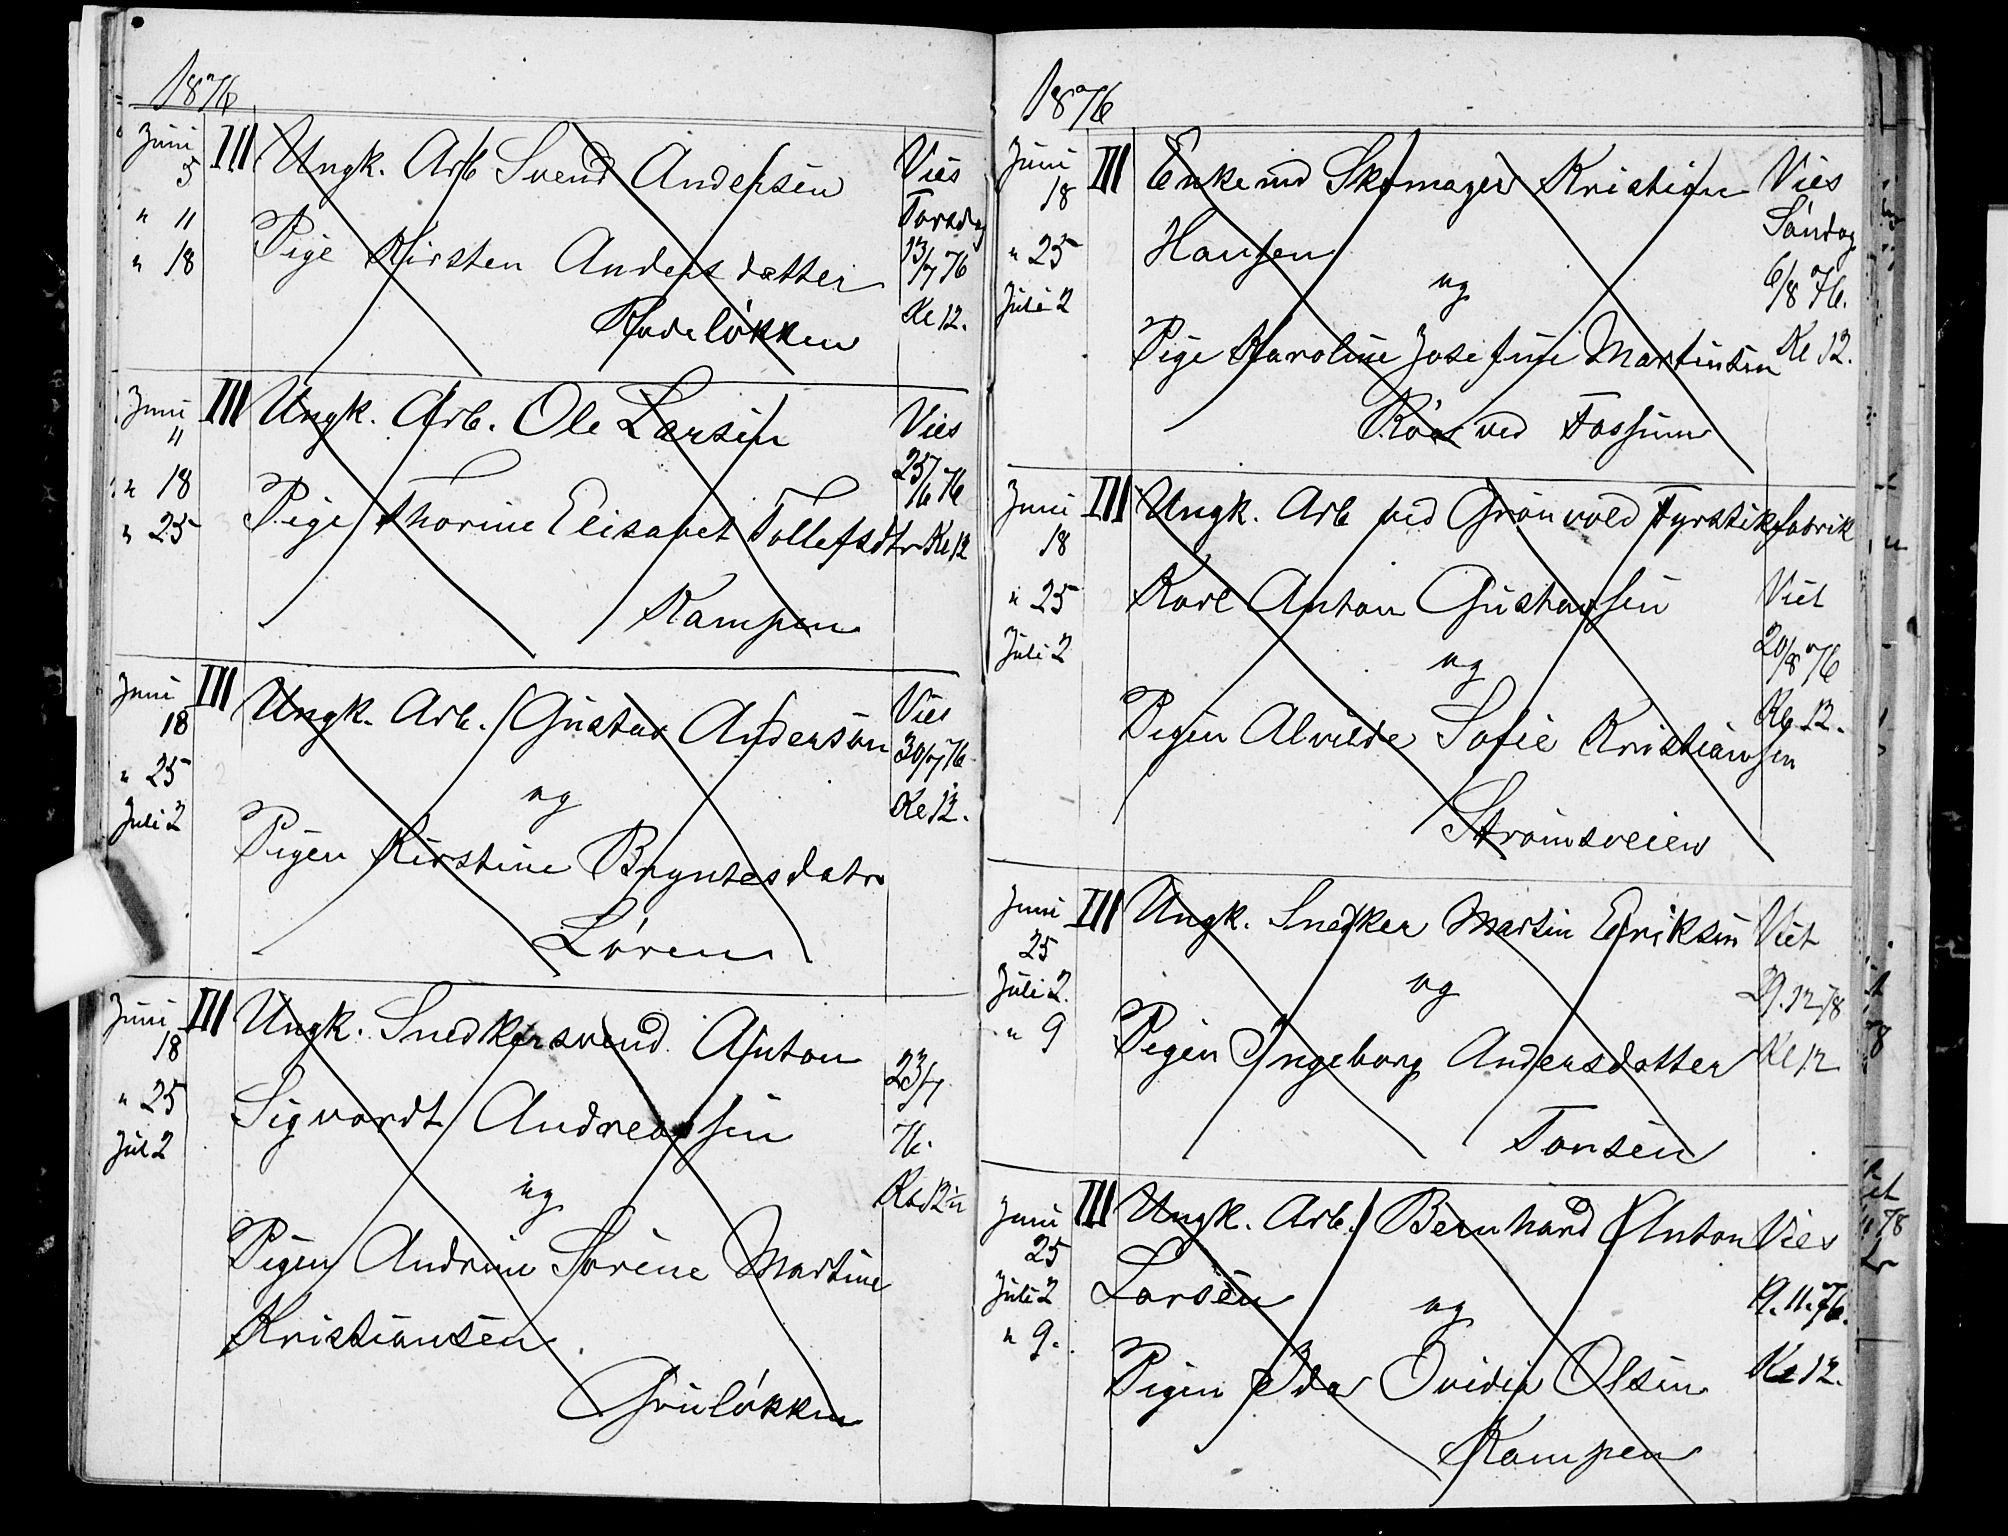 1876
Juni 5 III Ungk. Arb Svend Andersen Vies
" 11 Torsdag
" 18 Pige Kirsten Andersdatter 13/7 76
Rodeløkken Kl 12.
Juni 11 III Ungk. Arb. Ole Larsen Vies
" 18 25/6 76
" 25 Pige Thorine Elisabet Tollefsdtr Kl 12
Kampen
Juni 18 III Ungk. Arb. Gustav Anderson Vies
" 25 og 30/7 76
Juli 2 Pigen Kirstine Bryntesdatr Kl 12.
Løren
Juni 18 III Ungk. Snedkersvend Anton
" 25 Sigvardt Andreassen 23/7
Jul 2 og 76.
Pigen Andrine Sørine Martine
Kristiansen.
Grünløkken
1876
Juni 18 III Enkemd Skomager Kristian Vies
" 25 Hansen Søndag
Juli 2 og 6/8 76.
Pige Karoline Josefine Martinsen Kl 12.
Røa ved Fossum
Juni 18 III Ungk. Arb ved Grønvold Fyrstikfabrik
" 25 Karl Anton Gustavsen Viet
Juli 2 og 20/8 76
Pigen Alvilde Sofie Kristiansen Kl. 12.
Strømsveien
Juni 25 III Ungk. Snedker Martin Eriksen Viet
Juli 2. og 29.12 78
" 9 Pigen Ingeborg Andersdatter Kl 12
Tonsen
Juni 25 III Ungk. Arb. Bernhard Anton Vies
Juli 2 Larsen og 9.11.76.
" 9. Pigen Ida Ovidia Olsen Kl 12.
Kampen